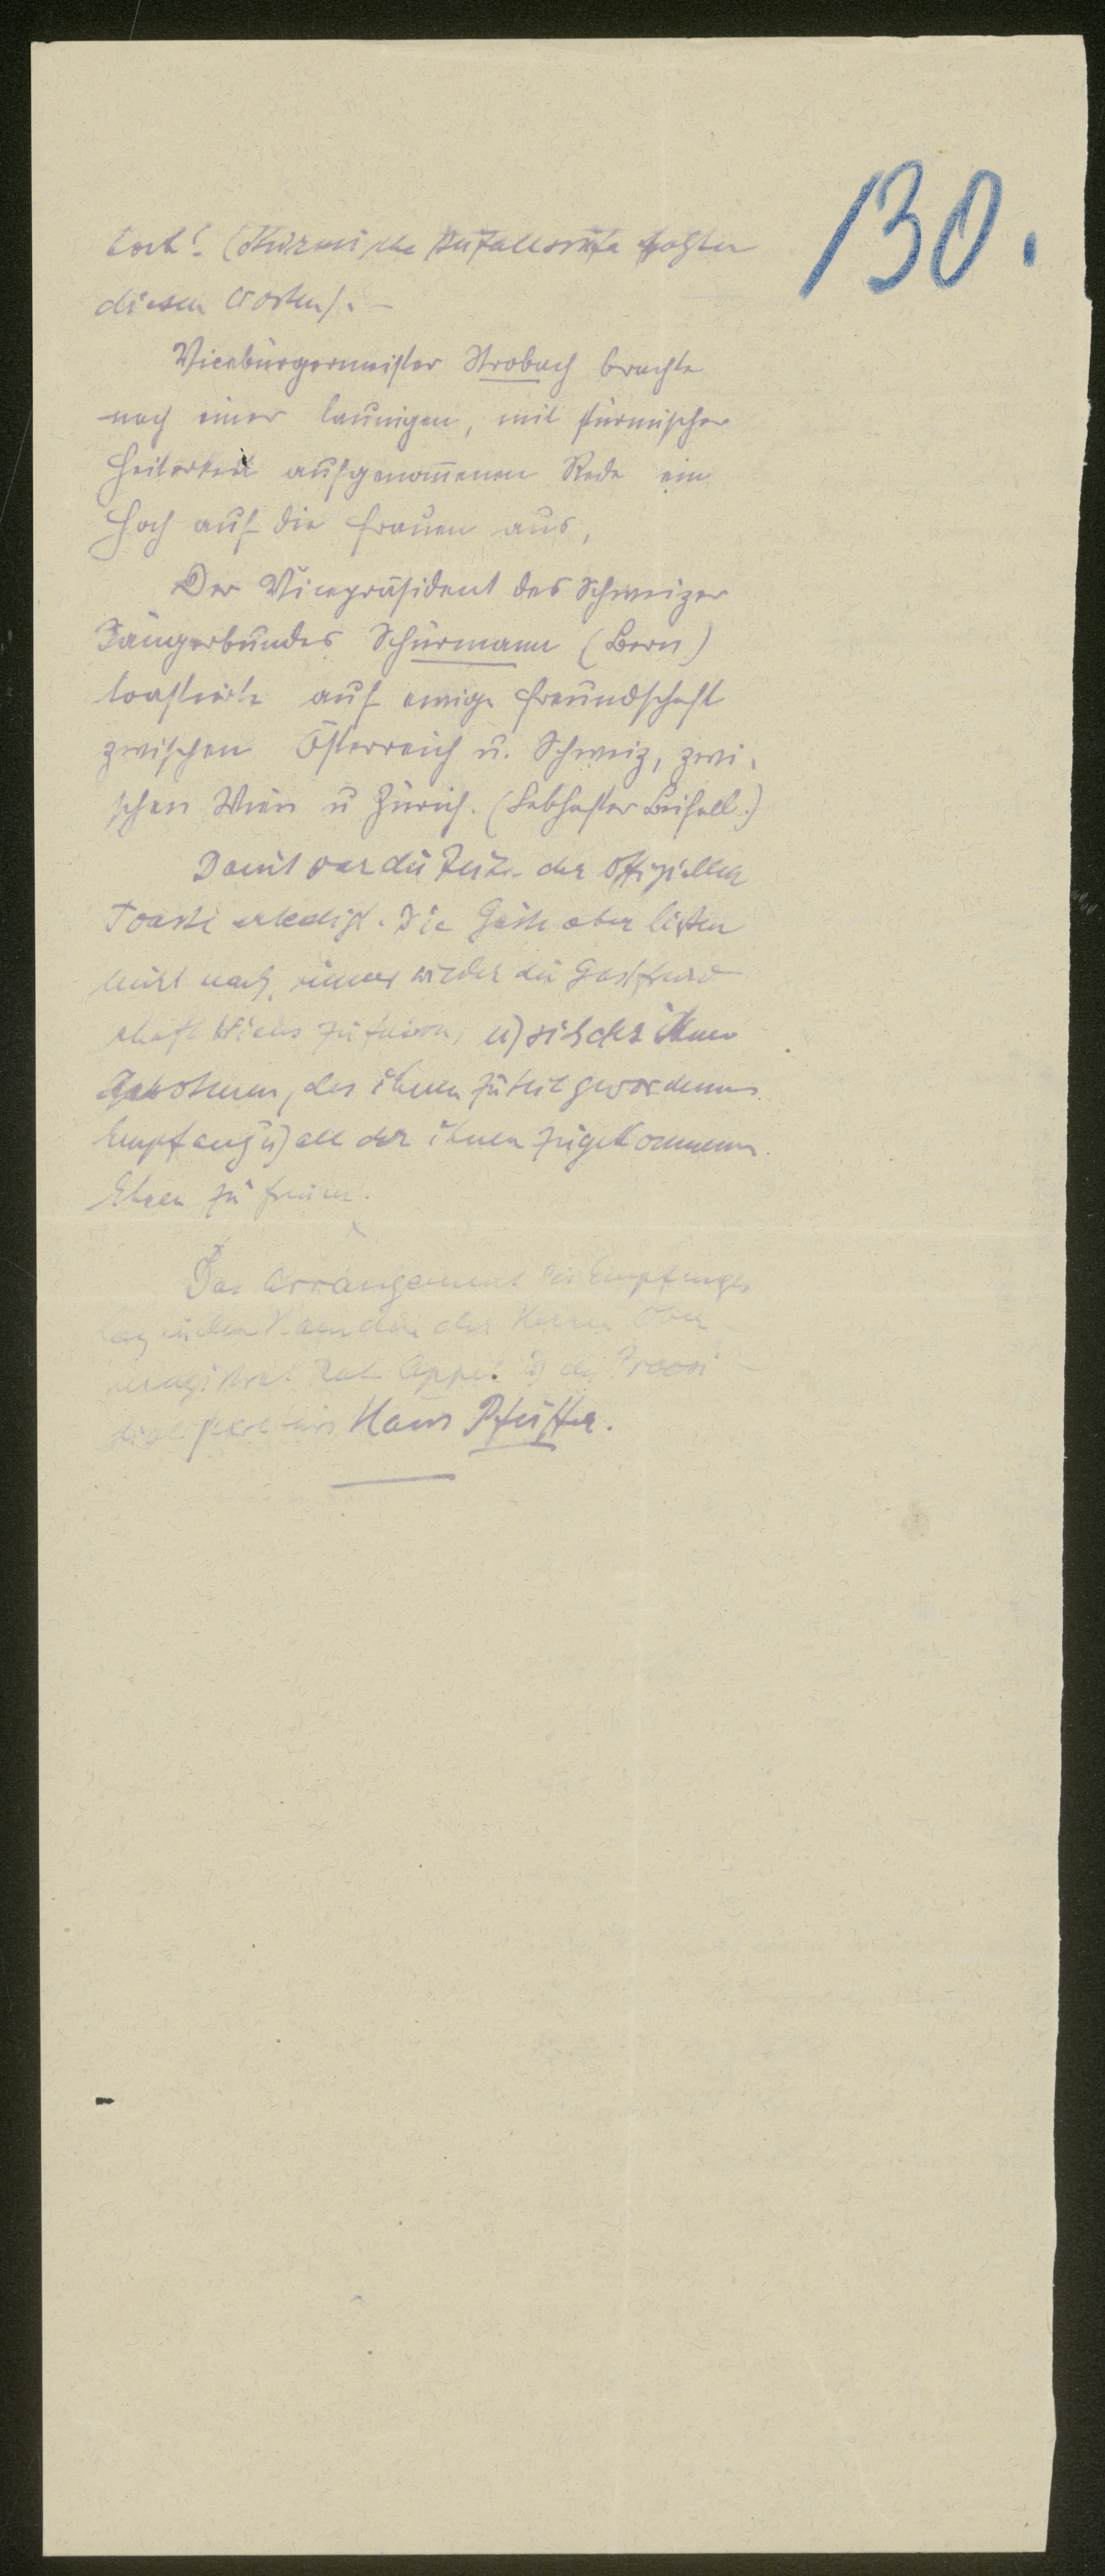 130.
hoch! (Stürmische Beifallsrufe folgten
diesen Worten). –
Vicebürgermeister Strobach brachte
noch einer launigen, mit stürmischer
Heiterkeit aufgenommenen Rede ein
Hoch auf die Frauen aus,
Der Vicepräsident des Schweizer
Sängerbundes Schürmann (Bern)
toastirte auf ewige Freundschaft
zwischen Österreich u. Schweiz, zwi-
schen Wien u Zürich. (Lebhafter Beifall.)
Damit war die Reihe der offiziellen
Toaste erledigt. Die Gäste aber ließen
nicht nach, immer wieder die Gastfreund
schaft Wiens zu feiern, u) sich des ihnen
Gebotenen, des ihnen zuteil gewordenen
Empfang u) all der ihnen zugekommenen
Ehren zu freuen.
Das Arrangement des Empfanges
lag in den Händen der Herren Ober
Rat Appel u) des Präsi-
Hans Pfeiffer.